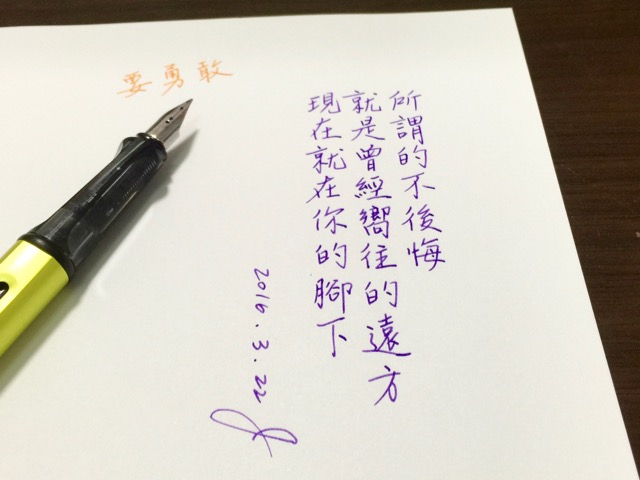 要勇敢
所謂的不後悔
就是曾經嚮往的遠方
現在就在你的腳下
2016.3.22